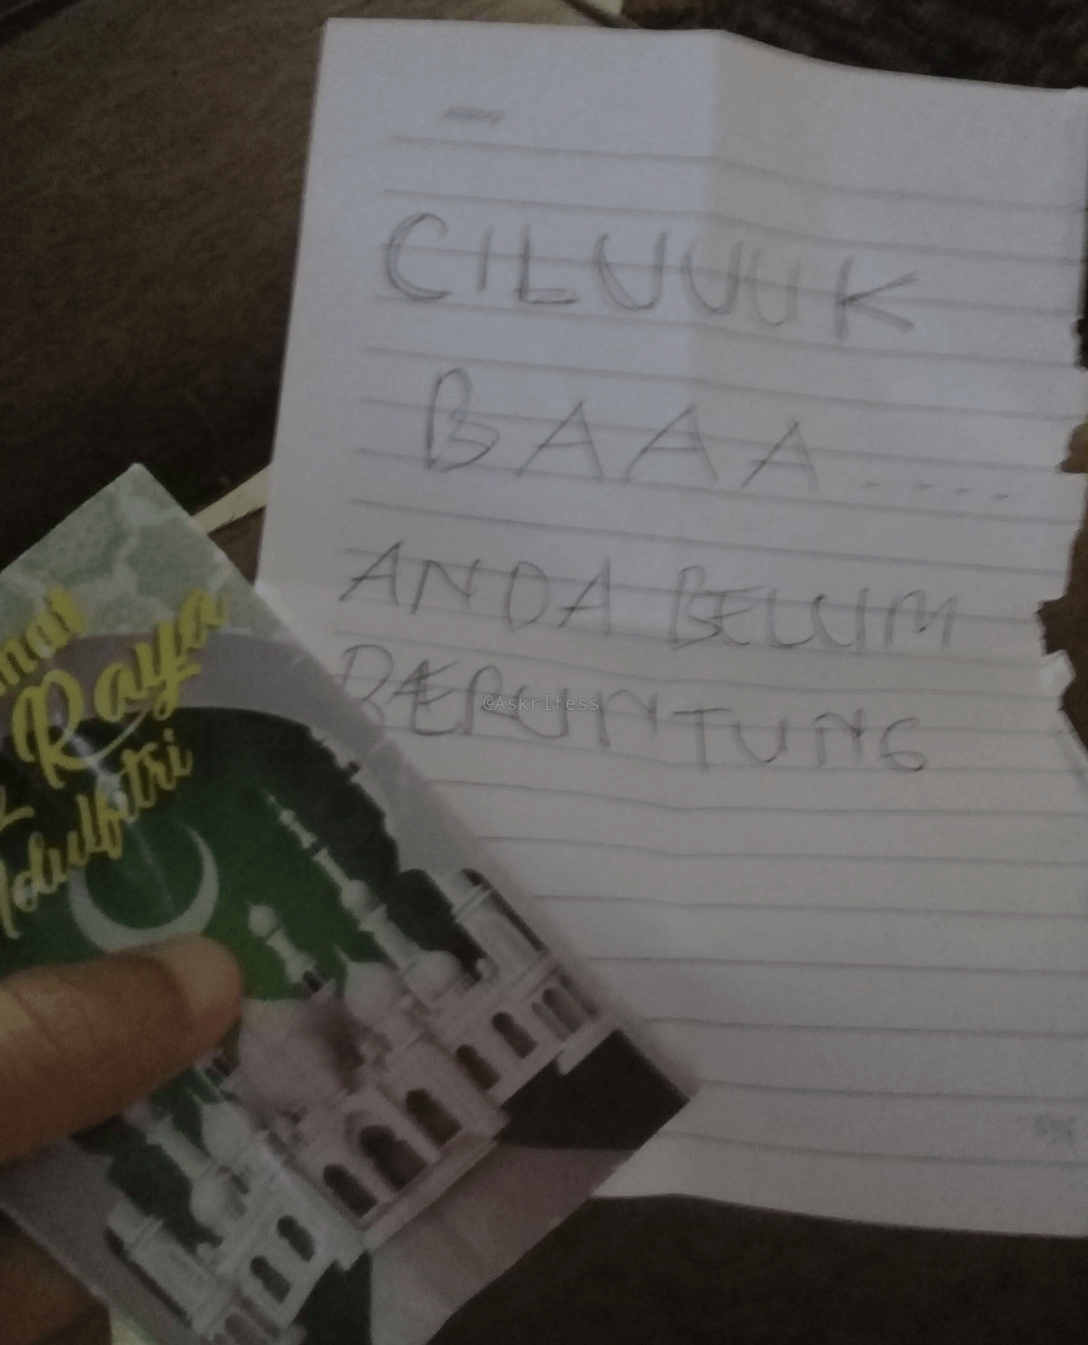 CILUUUK
BAAA....
ANDA BELUM
BERUNTUNG
@Askr1fess
Raya
Idulfitri